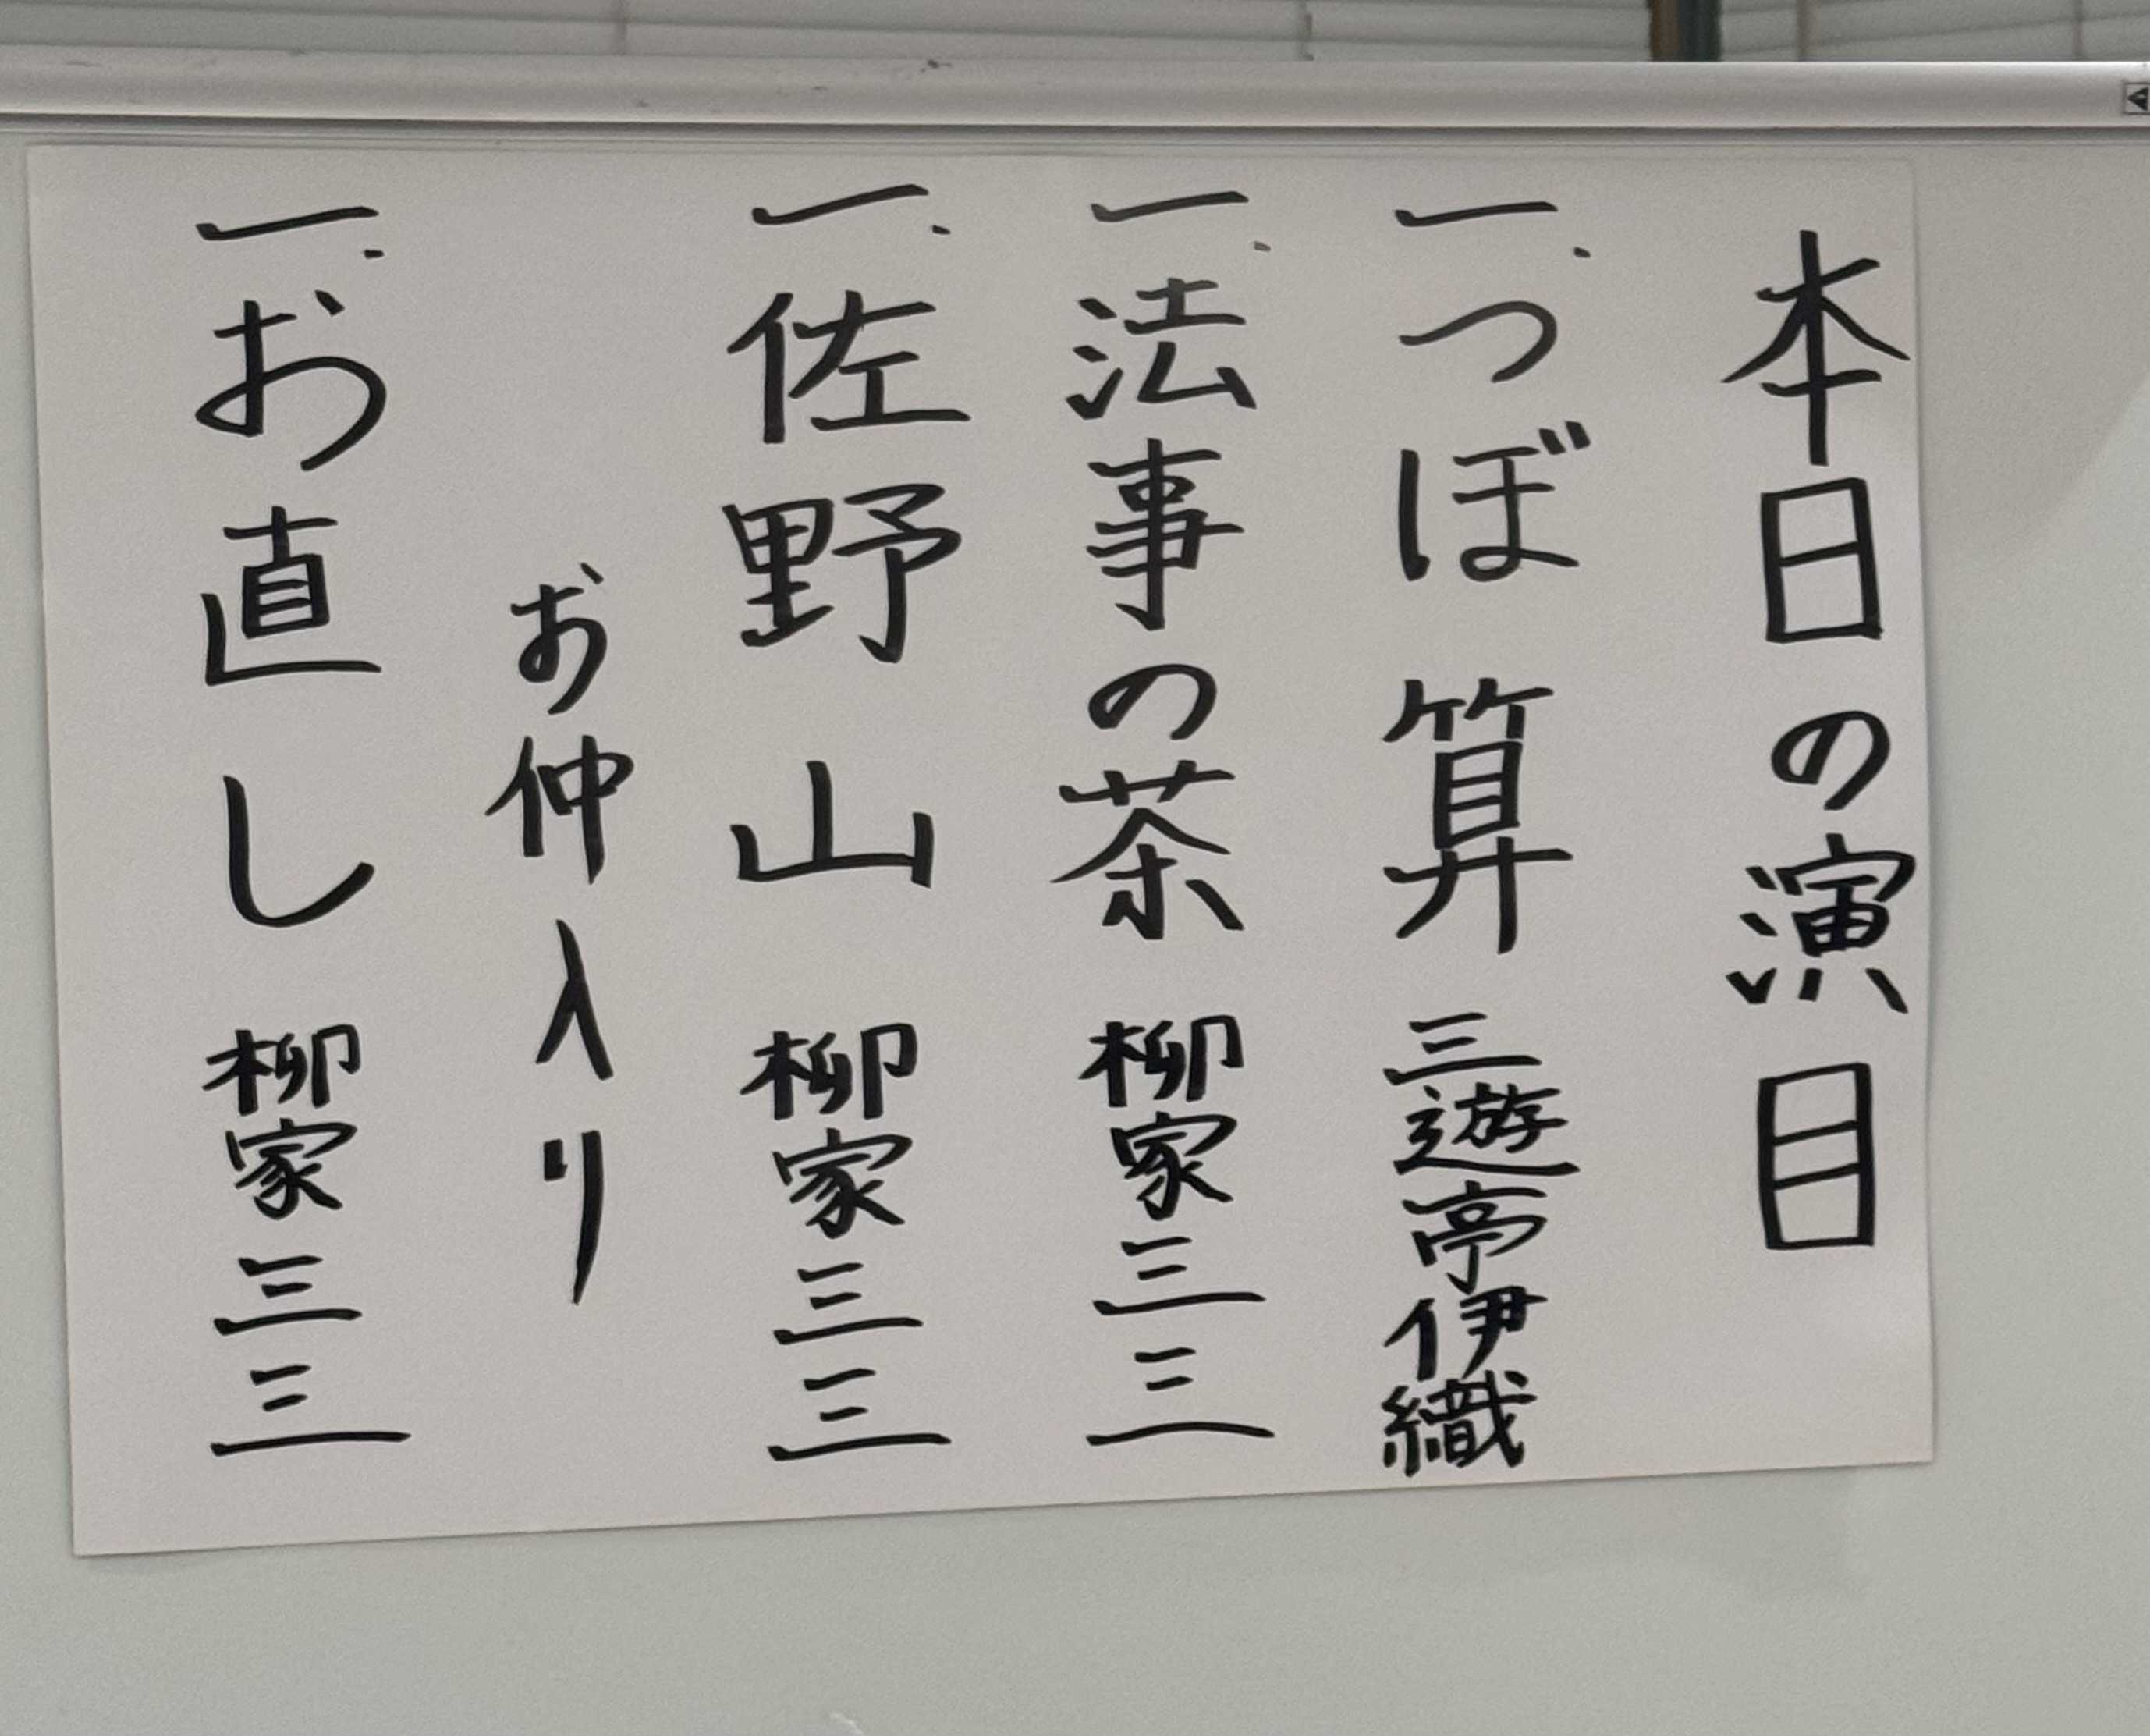 本日の演目
一.つぼ算 三遊亭伊織
一.法事の茶 柳家三三
一.佐野山 柳家三三
お仲入り
一.お直し 柳家三三